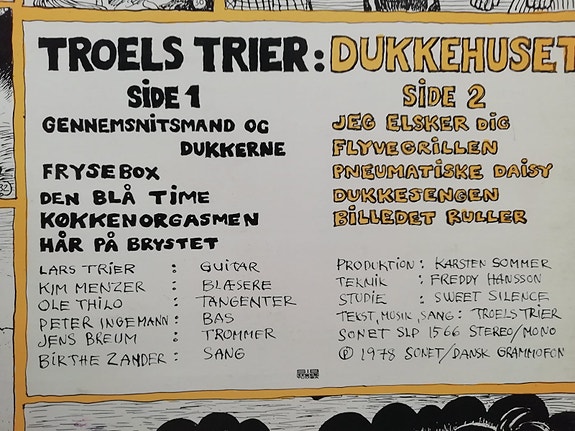 TROELS TRIER: DUKKEHUSET
SIDE 1
GENNEMSNITSMAND OG
DUKKERNE
FRYSEBOX
DEN BLÅ TIME
KØKKENORGASMEN
HÅR PÅ BRYSTET
SIDE 2
JEG ELSKER DIG
FLYVEGRILLEN
PNEUMATISKE DAISY
DUKKESENGEN
BILLEDET RULLER
LARS TRIER : GUITAR
KIM MENZER : BLÆSERE
OLE THILO : TANGENTER
PETER INGEMANN: BAS
JENS BREUM : TROMMER
BIRTHE ZANDER: SANG
PRODUKTION : KARSTEN SOMMER
TEKNIK : FREDDY HANSSON
STUDIE : SWEET SILENCE
TEKST, MUSIK, SANG: TROELS TRIER
SONET SLP 1566 STEREO/MONO
℗ 1978 SONET/DANSK GRAMMOFON